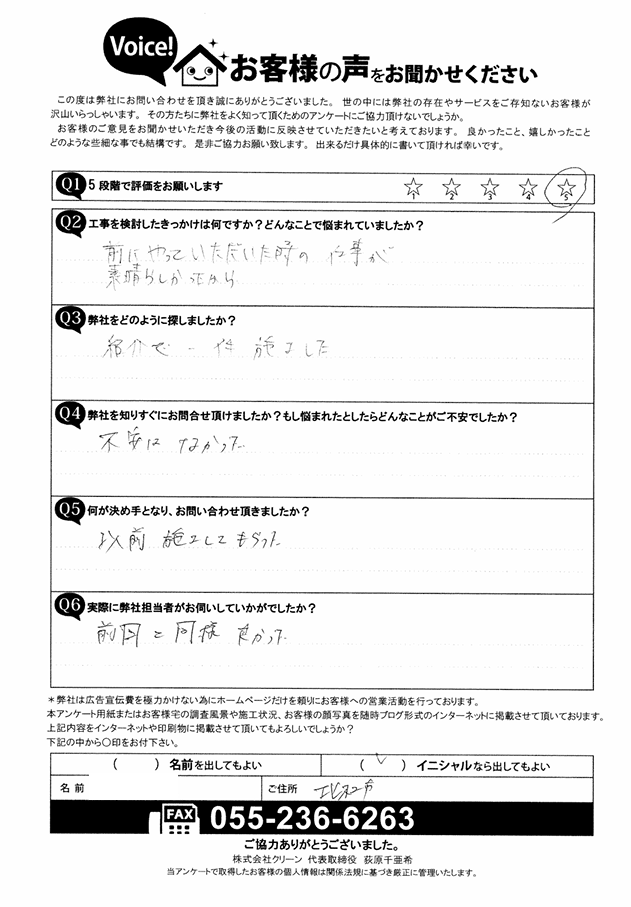 Voice!
お客様の声をお聞かせください
この度は弊社にお問い合わせを頂き誠にありがとうございました。 世の中には弊社の存在やサービスをご存知ないお客様が
沢山いらっしゃいます。 その方たちに弊社をよく知って頂くためのアンケートにご協力頂けないでしょうか。
お客様のご意見をお聞かせいただき今後の活動に反映させていただきたいと考えております。 良かったこと、嬉しかったこと
どのような些細な事でも結構です。 是非ご協力お願い致します。 出来るだけ具体的に書いて頂ければ幸いです。
Q1 5段階で評価をお願いします ☆1 ☆2 ☆3 ☆4 ☆5
Q2 工事を検討したきっかけは何ですか？どんなことで悩まれていましたか？
前にやっていただいた時の仕事が
素晴らしかったから
Q3 弊社をどのように探しましたか？
紹介で一件施工した
Q4 弊社を知りすぐにお問合せ頂けましたか？もし悩まれたとしたらどんなことがご不安でしたか？
不安はなかった
Q5 何が決め手となり、お問い合わせ頂きましたか？
以前施工してもらった
Q6 実際に弊社担当者がお伺いしていかがでしたか？
前回と同様良かった
＊弊社は広告宣伝費を極力かけない為にホームページだけを頼りにお客様への営業活動を行っております。
本アンケート用紙またはお客様宅の調査風景や施工状況、お客様の顔写真を随時ブログ形式のインターネットに掲載させて頂いております。
上記内容をインターネットや印刷物に掲載させて頂いてもよろしいでしょうか？
下記の中から〇印をお付下さい。
( ) 名前を出してもよい (✓) イニシャルなら出してもよい
名前 ご住所
FAX 055-236-6263
ご協力ありがとうございました。
株式会社クリーン 代表取締役 荻原千亜希
当アンケートで取得したお客様の個人情報は関係法規に基づき厳正に管理いたします。